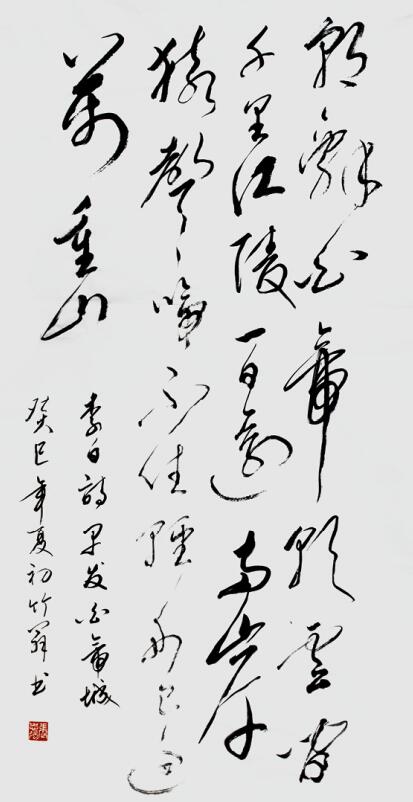 朝辭白帝彩雲間
千里江陵一日還兩岸
猿聲啼不住輕舟已過
萬重山
李白詩早发白帝城
癸巳年夏初竹书